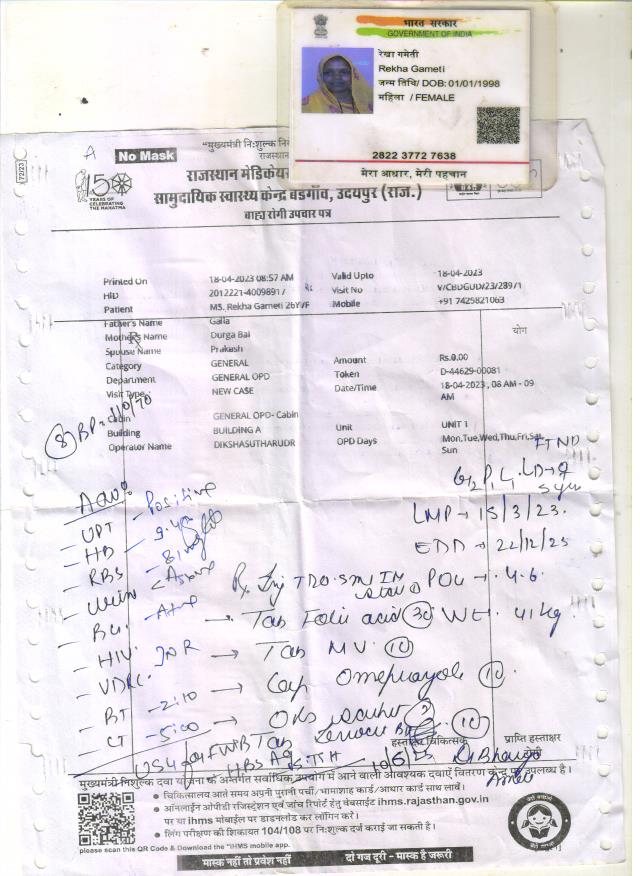 भारत सरकार
GOVERNMENT OF INDIA
रेखा गमेती
Rekha Gameti
जन्म तिथि/ DOB: 01/01/1998
महिला / FEMALE
2822 3772 7638
मेरा आधार, मेरी पहचान
72/23
A
No Mask
"मुख्यमंत्री नि:शुल्क
राजस्थान
150
YEARS OF
CELEBRATING
THE MAHATMA
राजस्थान मेडिकेयर
सामुदायिक स्वास्थ्य केन्द्र बडगाँव, उदयपुर (राज.)
बाह्य रोगी उपचार पत्र
Printed On 18-04-2023 08:57 AM Valid Upto 18-04-2023
HID Visit No
Patient MS. Rekha Gameti 26Y/F Mobile +91 7425821063
Father's Name Galla योग
Mother's Name Durga Bai
Spouse Name Prakash
Category GENERAL Amount Rs.0.00
Department GENERAL OPD Token D-44629-00081
Visit Type NEW CASE Date/Time 18-04-2023 , 08 AM - 09 AM
Cabin GENERAL OPD- Cabin
Building BUILDING A Unit UNIT 1
Operator Name DIKSHASUTHARUDR OPD Days Mon,Tue,Wed,Thu,Fri,Sat, Sun
BP- 110/70
FTND
G2 P1 L1
UPT - Positive
LMP - 15/3/23.
HB - 9.4
EDD - 22/12/23
RBS - 81
Urine
Rx Inj TT 0.5ml IM POG - 4.6
BG.
Tab Folic acid 30 WT. 41 kg
HIV N.R
Tab MV 10
VDRL
Cap Omeprazole 10
BT - 2:10
ORS
CT - 5:00
Tab 10
USG for FWB
HBSAg S.TSH
हस्ताक्षर चिकित्सक प्राप्ति हस्ताक्षर
रोगी
मुख्यमंत्री निःशुल्क दवा योजना के अन्तर्गत सर्वाधिक उपयोग में आने वाली आवश्यक दवाएँ वितरण केन्द्र पर उपलब्ध है।
• चिकित्सालय आते समय अपनी पुरानी पर्ची/भामाशाह कार्ड/आधार कार्ड साथ लावें।
• ऑनलाईन ओपीडी रजिस्ट्रेशन एवं जांच रिपोर्ट हेतु वेबसाईट ihms.rajasthan.gov.in
पर या ihms मोबाईल पर डाउनलोड कर लॉगिन करे।
• लिंग परीक्षण की शिकायत 104/108 पर निःशुल्क दर्ज कराई जा सकती है।
please scan this QR Code & Download the "IHMS mobile app.
मास्क नहीं तो प्रवेश नहीं दो गज दूरी - मास्क है जरूरी